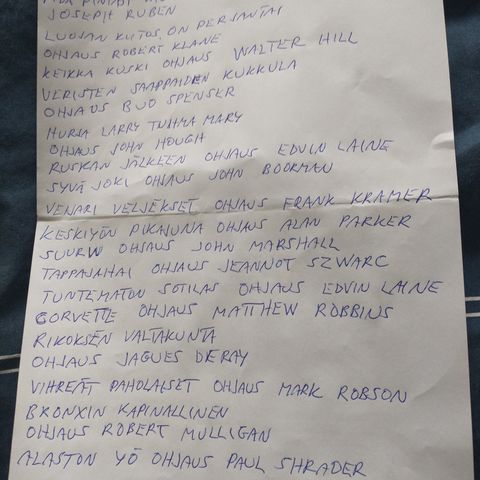 JOSEPH RUBEN
LUOJAN KIITOS, ON PERJANTAI
OHJAUS ROBERT KLANE
KEIKKA KUSKI OHJAUS WALTER HILL
VERISTEN SAAPPAIDEN KUKKULA
OHJAUS BUD SPENSER
HURJA LARRY TUHMA MARY
OHJAUS JOHN HOUGH
RUSKAN JÄLKEEN OHJAUS EDVIN LAINE
SYVÄ JOKI OHJAUS JOHN BOORMAN
VENARI VELJEKSET OHJAUS FRANK KRAMER
KESKIYÖN PIKAJUNA OHJAUS ALAN PARKER
SUURW OHJAUS JOHN MARSHALL
TAPPAJAHAI OHJAUS JEANNOT SZWARC
TUNTEMATON SOTILAS OHJAUS EDVIN LAINE
CORVETTE OHJAUS MATTHEW ROBBINS
RIKOKSEN VALTAKUNTA
OHJAUS JAGUES DERAY
VIHREÄT PAHOLAISET OHJAUS MARK ROBSON
BRONXIN KAPINALLINEN
OHJAUS ROBERT MULLIGAN
ALASTON YÖ OHJAUS PAUL SHRADER